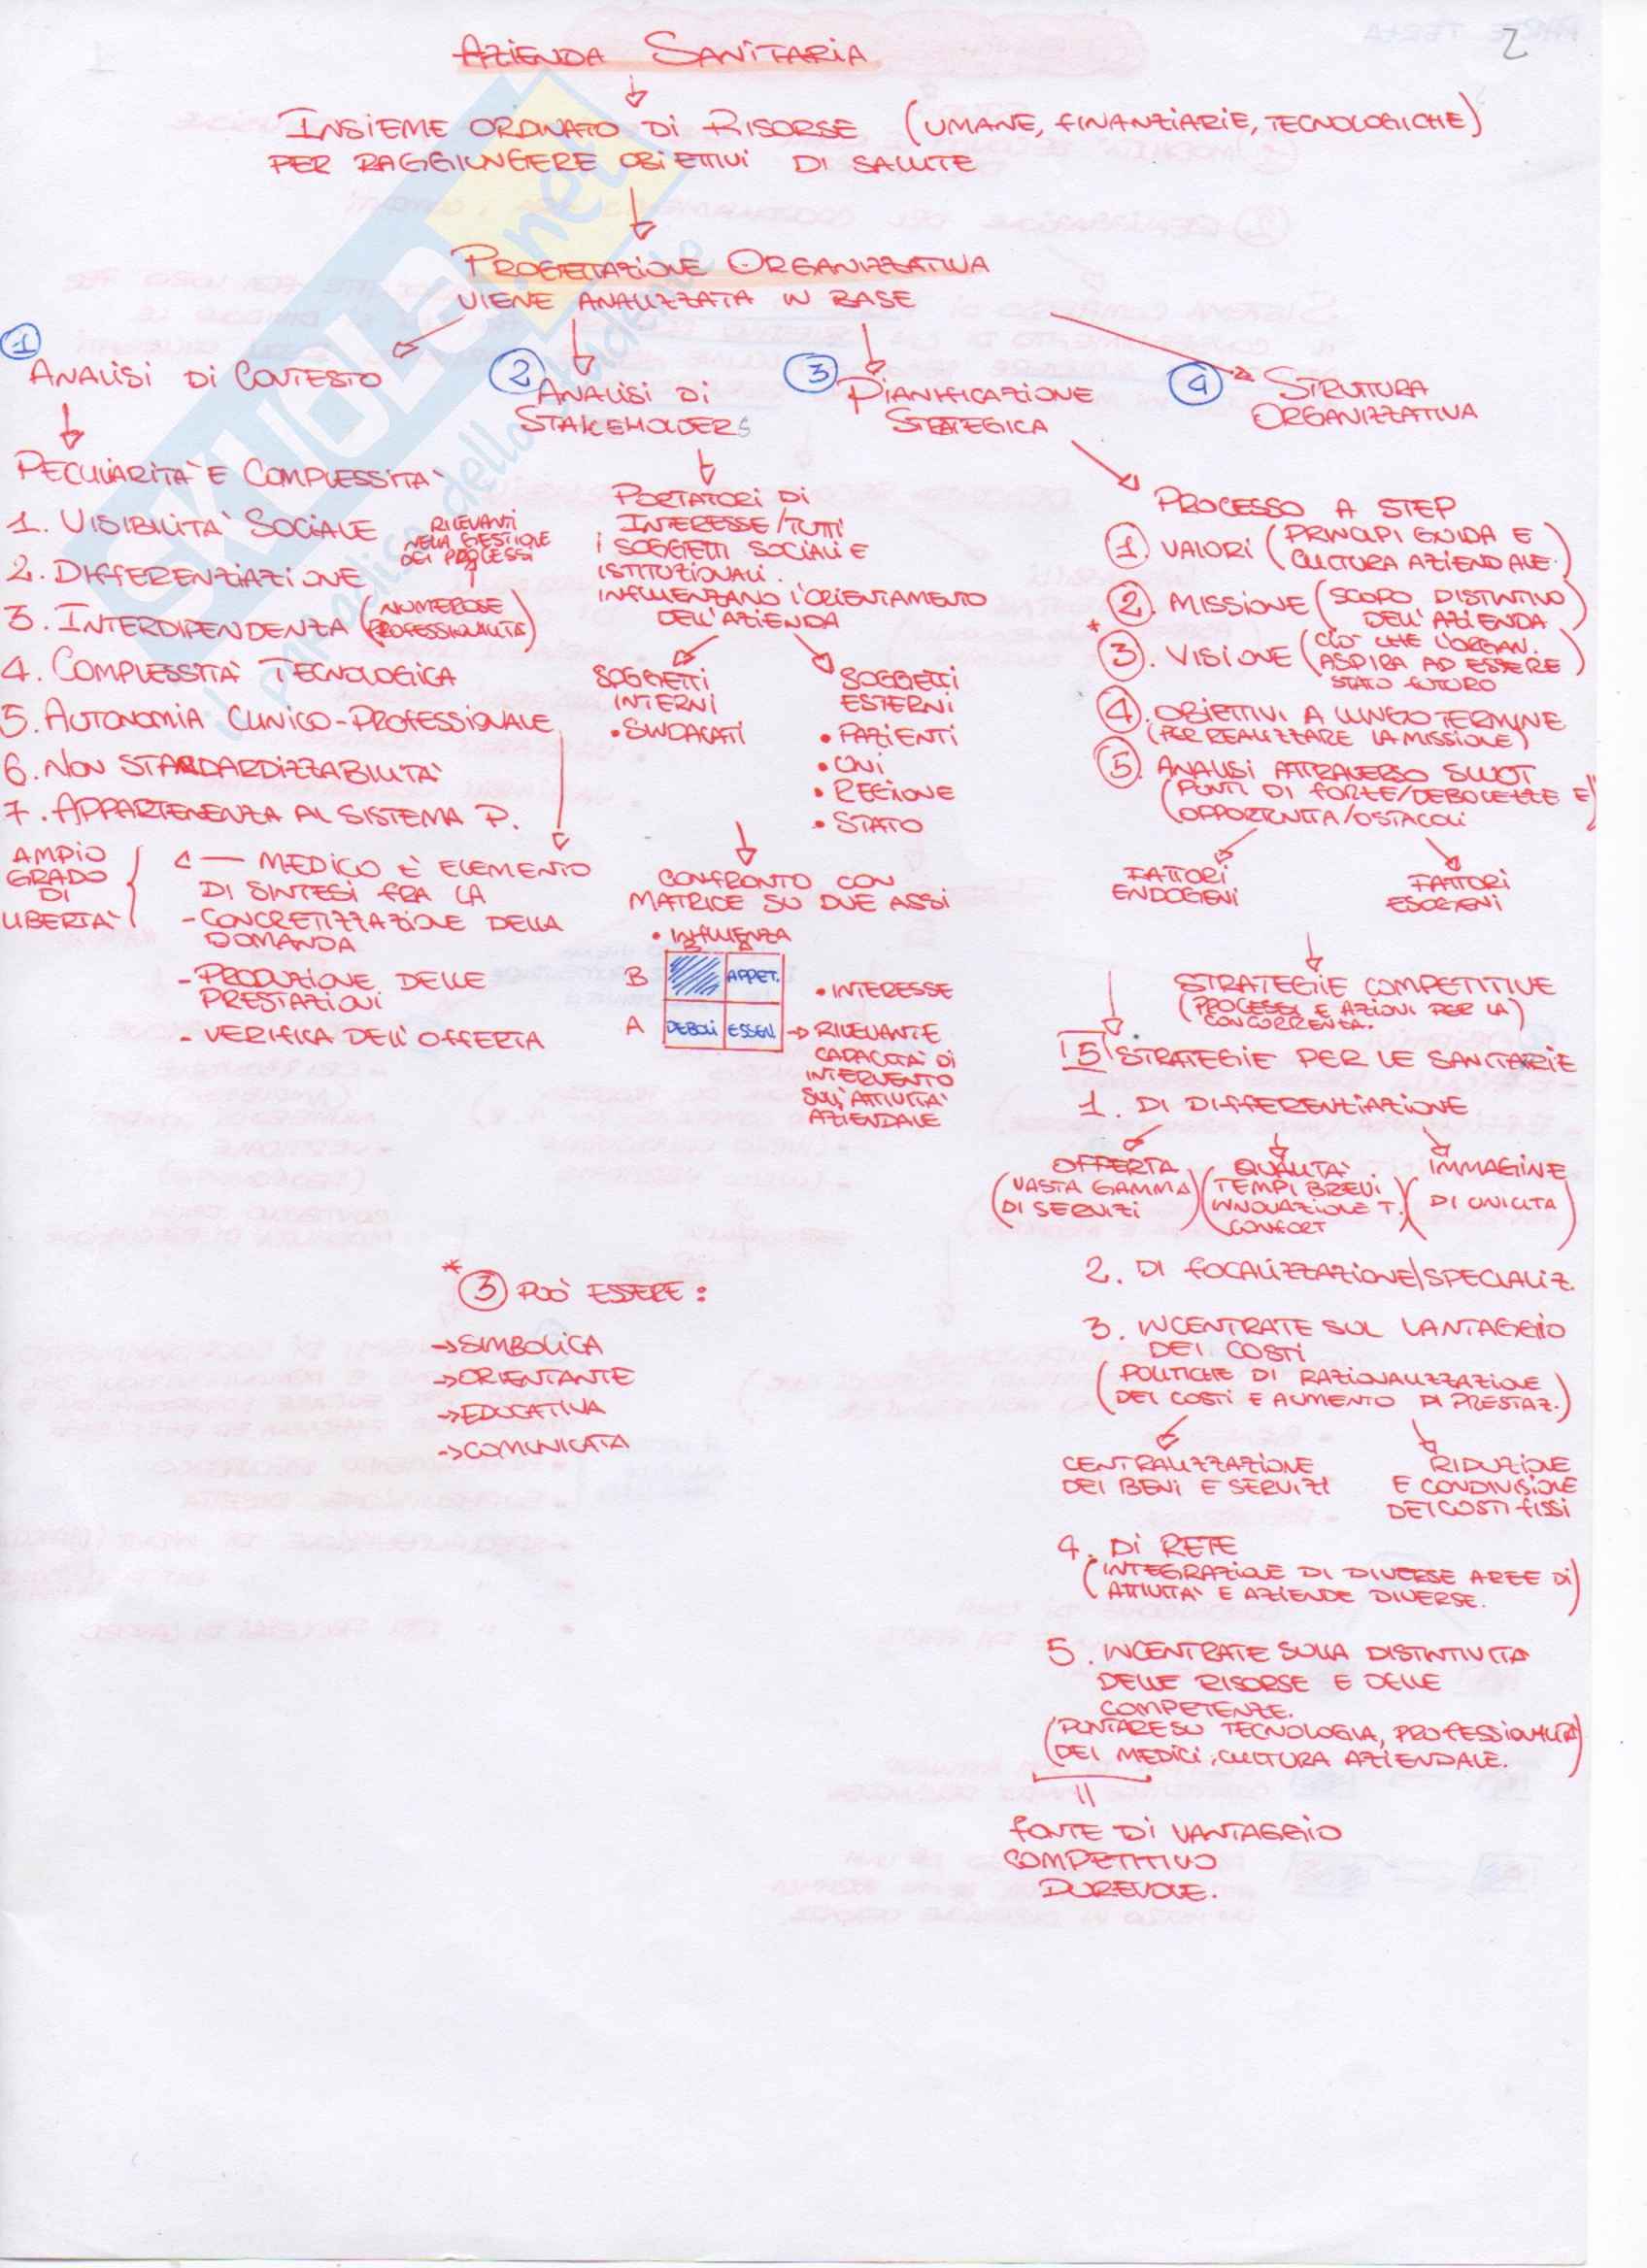 2
AZIENDA SANITARIA
INSIEME ORDINATO DI RISORSE (UMANE, FINANZIARIE, TECNOLOGICHE)
PER RAGGIUNGERE OBIETTIVI DI SALUTE
PROGETTAZIONE ORGANIZZATIVA
VIENE ANALIZZATA IN BASE
1
ANALISI DI CONTESTO
PECULIARITA' E COMPLESSITA'
1. VISIBILITA' SOCIALE
RILEVANTI
NELLA GESTIONE
DEI PROCESSI
2. DIFFERENZIAZIONE
3. INTERDIPENDENZA (NUMEROSE
PROFESSIONALITA')
4. COMPLESSITA' TECNOLOGICA
5. AUTONOMIA CLINICO-PROFESSIONALE
6. NON STANDARDIZZABILITA'
7. APPARTENENZA AL SISTEMA P.
AMPIO
GRADO
DI
LIBERTA'
- MEDICO È ELEMENTO
DI SINTESI FRA LA
- CONCRETIZZAZIONE DELLA
DOMANDA
- PRODUZIONE DELLE
PRESTAZIONI
- VERIFICA DELL'OFFERTA
2
ANALISI DI
STAKEHOLDERS
PORTATORI DI
INTERESSE/TUTTI
I SOGGETTI SOCIALI E
ISTITUZIONALI.
INFLUENZANO L'ORIENTAMENTO
DELL'AZIENDA
SOGGETTI
INTERNI
• SINDACATI
SOGGETTI
ESTERNI
• PAZIENTI
• REGIONE
• STATO
CONFRONTO CON
MATRICE SU DUE ASSI
• INFLUENZA
B APPET.
• INTERESSE
A DEBOLI ESSEN → RILEVANTE
CAPACITA' DI
INTERVENTO
SULL'ATTIVITA'
AZIENDALE
* 3 PUÒ ESSERE:
→ SIMBOLICA
→ ORIENTANTE
→ EDUCATIVA
→ COMUNICATA
3
PIANIFICAZIONE
STRATEGICA
4
STRUTTURA
ORGANIZZATIVA
PROCESSO A STEP
1. VALORI (PRINCIPI GUIDA E
CULTURA AZIENDALE.)
2. MISSIONE (SCOPO DISTINTIVO
DELL'AZIENDA)
* 3. VISIONE (CIÒ CHE L'ORGAN.
ASPIRA AD ESSERE
STATO FUTURO)
4. OBIETTIVI A LUNGO TERMINE
(PER REALIZZARE LA MISSIONE)
5. ANALISI ATTRAVERSO SWOT
(PUNTI DI FORZE/DEBOLEZZE E
OPPORTUNITA/OSTACOLI)
FATTORI
ENDOGENI
FATTORI
ESOGENI
STRATEGIE COMPETITIVE
(PROCESSI E AZIONI PER LA
CONCORRENZA.)
5 STRATEGIE PER LE SANITARIE
1. DI DIFFERENZIAZIONE
OFFERTA
(VASTA GAMMA
DI SERVIZI)
QUALITA'
(TEMPI BREVI
INNOVAZIONE T.
CONFORT)
IMMAGINE
(DI UNICITA)
2. DI FOCALIZZAZIONE/SPECIALIZ.
3. INCENTRATE SUL VANTAGGIO
DEI COSTI
(POLITICHE DI RAZIONALIZZAZIONE
DEI COSTI E AUMENTO DI PRESTAZ.)
CENTRALIZZAZIONE
DEI BENI E SERVIZI
RIDUZIONE
E CONDIVISIONE
DEI COSTI FISSI
4. DI RETE
(INTEGRAZIONE DI DIVERSE AREE DI
ATTIVITA' E AZIENDE DIVERSE.)
5. INCENTRATE SULLA DISTINTIVITA
DELLE RISORSE E DELLE
COMPETENZE.
(PUNTARE SU TECNOLOGIA, PROFESSIONALITA
DEI MEDICI, CULTURA AZIENDALE.)
FONTE DI VANTAGGIO
COMPETITIVO
DUREVOLE.
SKUOLA.net
il paradiso dello studente